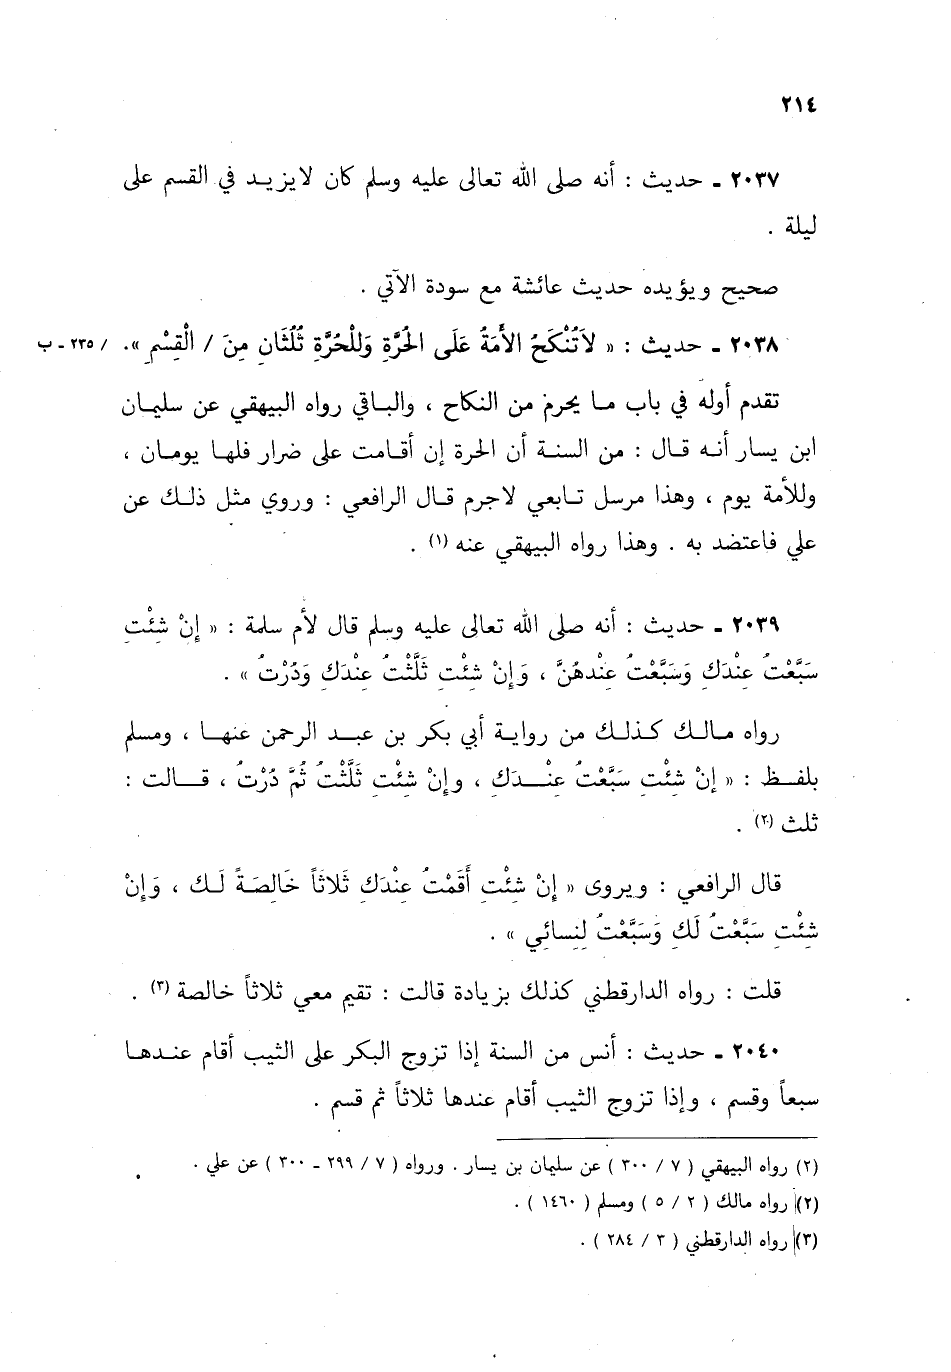 ٢١٤
٢٠٣٧ - حديث : أنه صلى الله تعالى عليه وسلم كان لايزيد في القسم على
ليلة .
صحيح ويؤيده حديث عائشة مع سودة الآتي .
٢٠٣٨ - حديث : « لاَتُنْكَحُ الأَمَةُ عَلَى الحُرَّةِ وَلِلْحُرَّةِ ثُلُثَانِ مِنَ / الْقِسْمِ ». / ٢٣٥ - ب
تقدم أوله في باب ما يحرم من النكاح ، والباقي رواه البيهقي عن سليمان
ابن يسار أنه قال : من السنة أن الحرة إن أقامت على ضرار فلها يومان ،
وللأمة يوم ، وهذا مرسل تابعي لاجرم قال الرافعي : وروي مثل ذلك عن
علي فاعتضد به . وهذا رواه البيهقي عنه (١) .
٢٠٣٩ - حديث : أنه صلى الله تعالى عليه وسلم قال لأم سلمة : « إِنْ شِئْتِ
سَبَّعْتُ عِنْدَكِ وَسَبَّعْتُ عِنْدهُنَّ ، وَإِنْ شِئْتِ ثَلَّثْتُ عِنْدَكِ وَدُرْتُ » .
رواه مالك كذلك من رواية أبي بكر بن عبد الرحمن عنها ، ومسلم
بلفظ : « إِنْ شِئْتِ سَبَّعْتُ عِنْدَكِ ، وإِنْ شِئْتِ ثَلَّثْتُ ثُمَّ دُرْتُ ، قالت :
ثلث (٢) .
قال الرافعي : ويروى « إِنْ شِئْتِ أَقَمْتُ عِنْدَكِ ثَلاثاً خَالِصَةً لَكِ ، وَإِنْ
شِئْتِ سَبَّعْتُ لَكِ وَسَبَّعْتُ لِنِسائِي » .
قلت : رواه الدارقطني كذلك بزيادة قالت : تقيم معي ثلاثاً خالصة (٣) .
٢٠٤٠ - حديث : أنس من السنة إذا تزوج البكر على الثيب أقام عندها
سبعاً وقسم ، وإذا تزوج الثيب أقام عندها ثلاثاً ثم قسم .
(٢) رواه البيهقي ( ٧ / ٣٠٠ ) عن سليمان بن يسار . ورواه ( ٧ / ٢٩٩ - ٣٠٠ ) عن علي .
(٢) رواه مالك ( ٢ / ٥ ) ومسلم ( ١٤٦٠ ) .
(٣) رواه الدارقطني ( ٣ / ٢٨٤ ) .